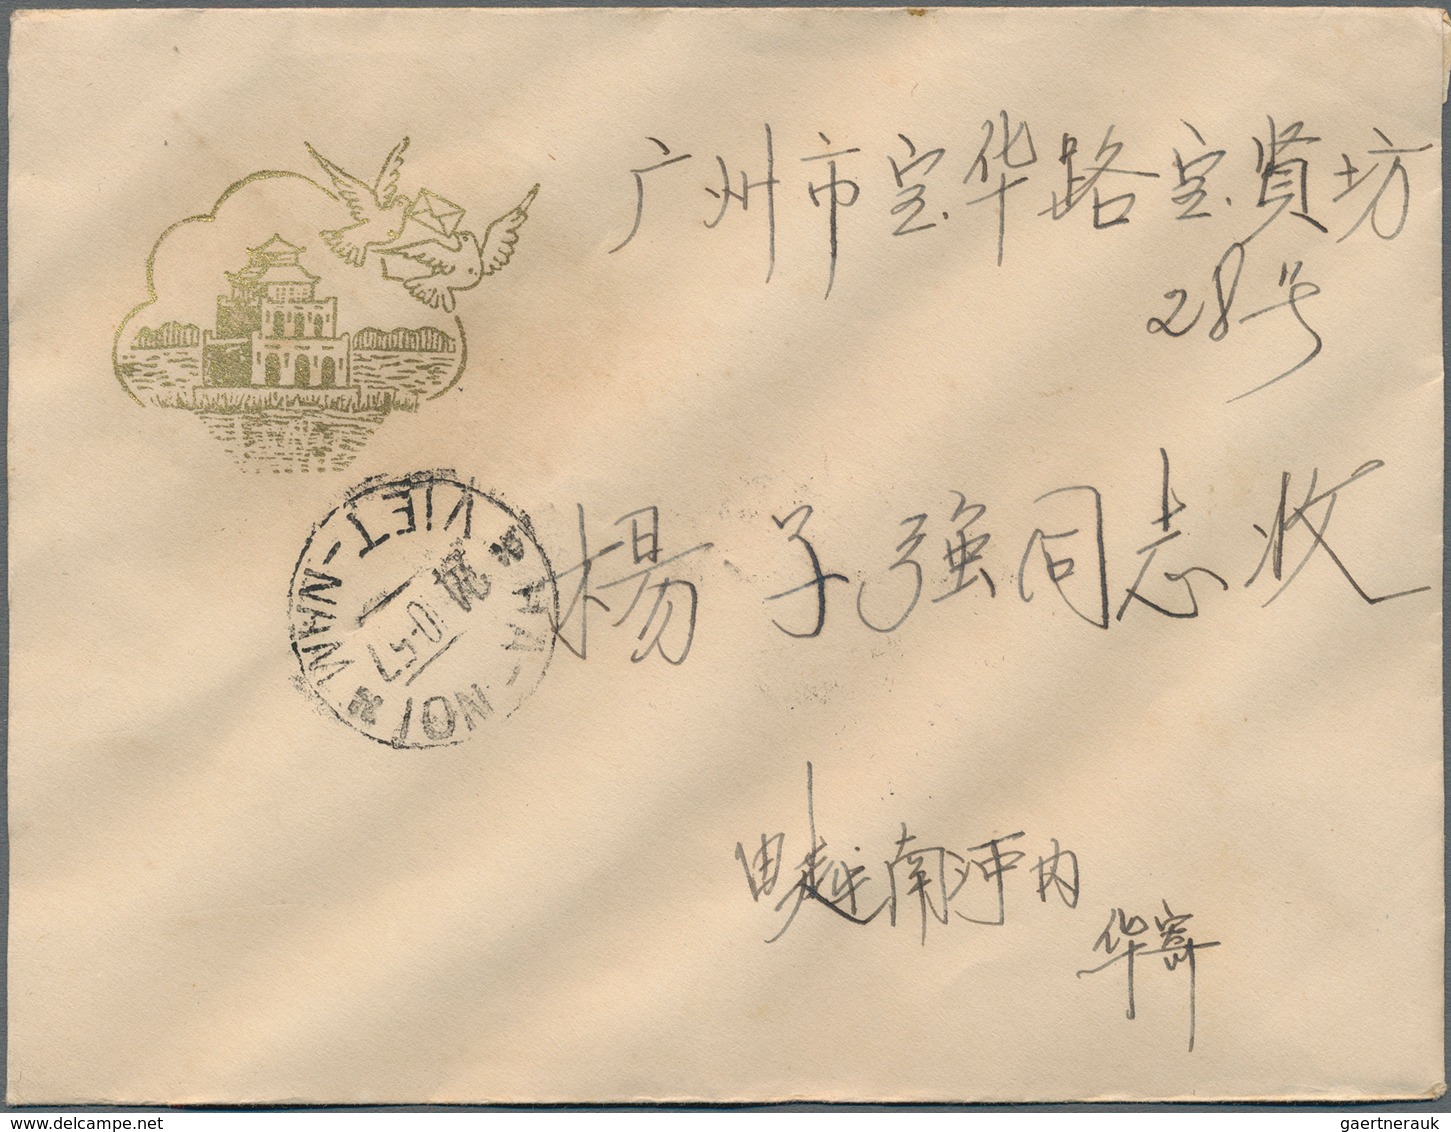 广州市宝华路宝贤坊
28号
楊子强同志收
由越南河内
华寄
VIET-NAM
HA-NOI
gaertnerauk